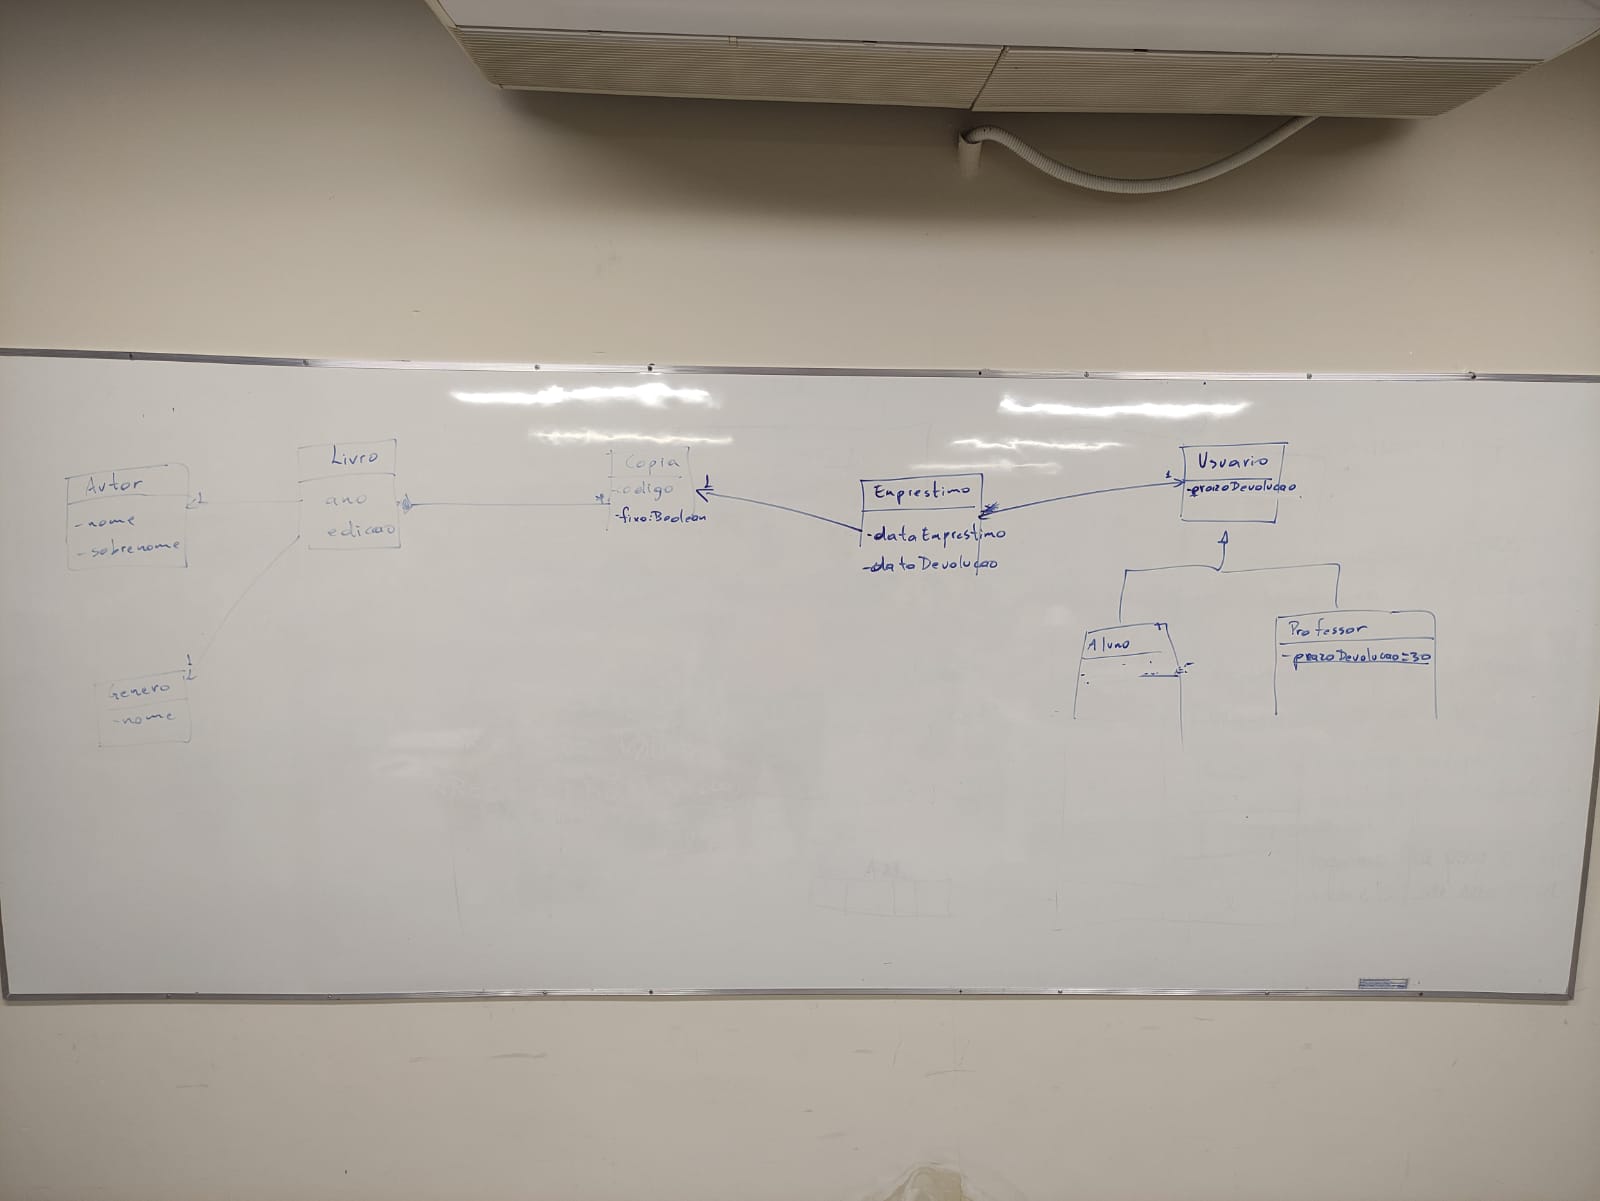 Autor
-nome
-sobrenome
1
Livro
ano
edicao
1
Genero
-nome
*
Copia
-codigo
-fixo:Boolean
1
Emprestimo
-dataEmprestimo
-dataDevolucao
*
1
Usuario
-prazoDevolucao
Aluno
Professor
-prazoDevolucao=30